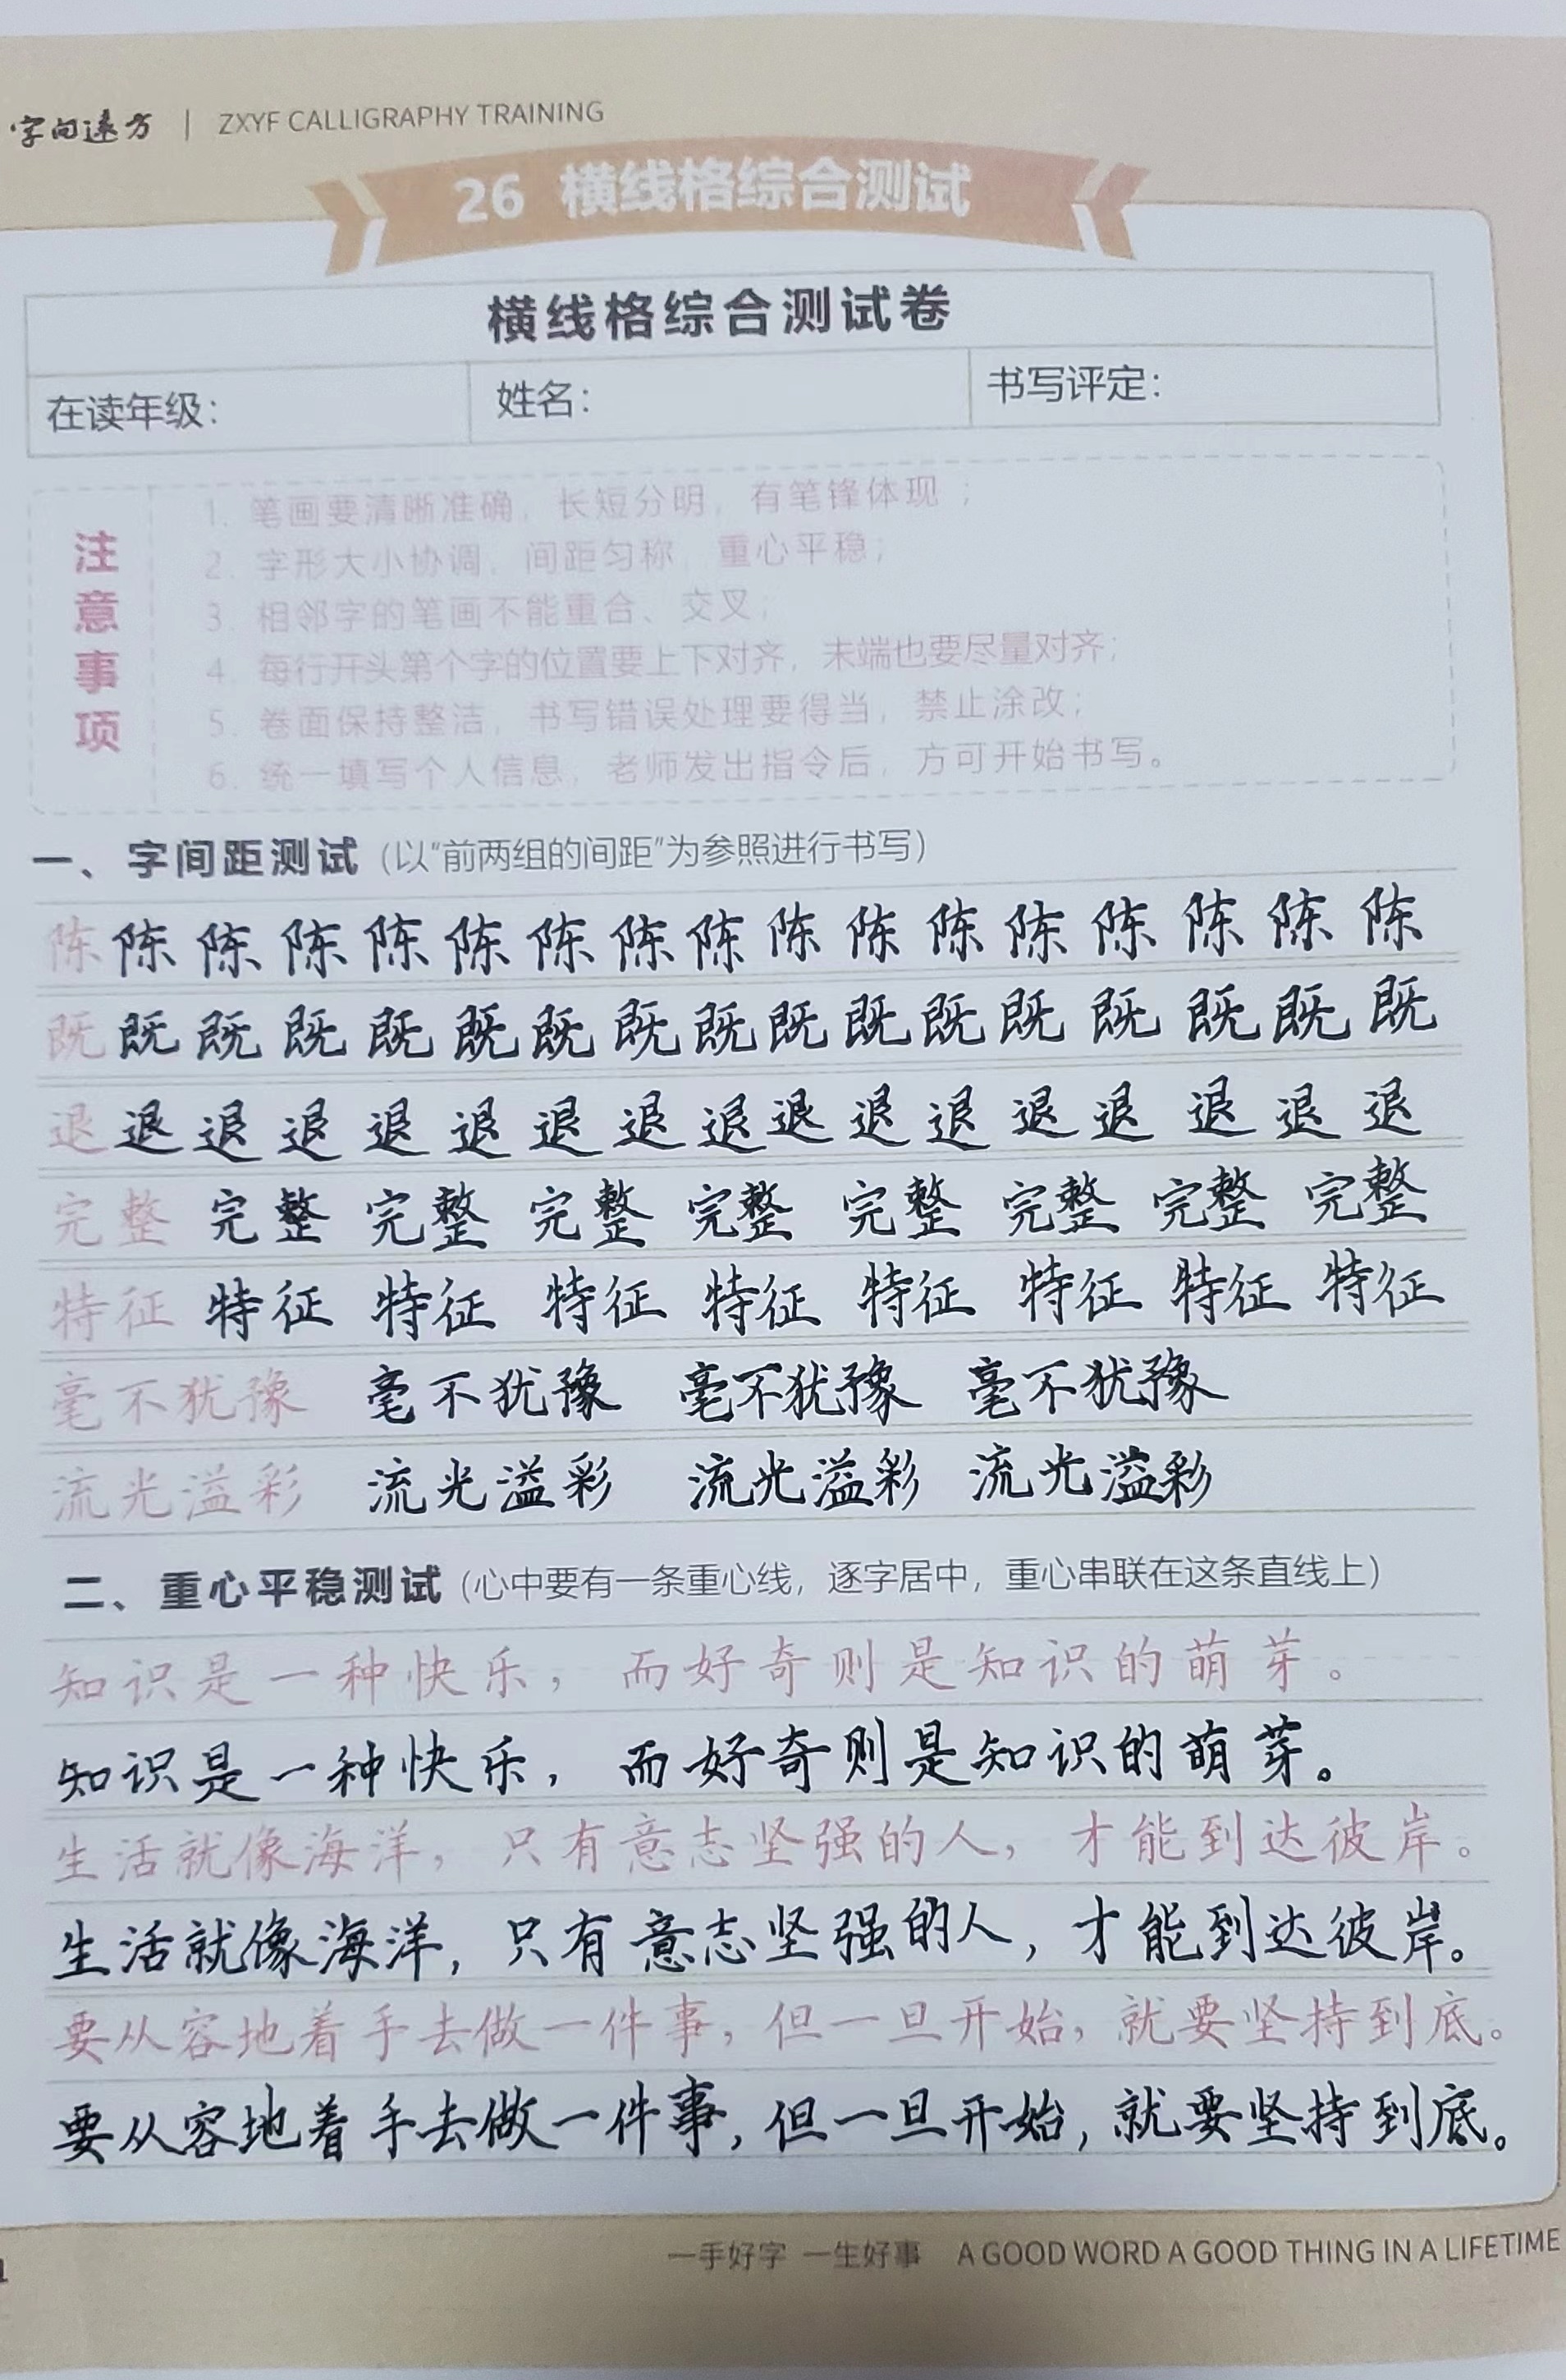 字向远方 | ZXYF CALLIGRAPHY TRAINING
26 横线格综合测试
横线格综合测试卷
在读年级： 姓名： 书写评定：
注意事项
1. 笔画要清晰准确，长短分明，有笔锋体现；
2. 字形大小协调，间距匀称，重心平稳；
3. 相邻字的笔画不能重合、交叉；
4. 每行开头第个字的位置要上下对齐，末端也要尽量对齐；
5. 卷面保持整洁，书写错误处理要得当，禁止涂改；
6. 统一填写个人信息，老师发出指令后，方可开始书写。
一、字间距测试（以“前两组的间距”为参照进行书写）
陈 陈 陈 陈 陈 陈 陈 陈 陈 陈 陈 陈 陈 陈 陈 陈 陈
既 既 既 既 既 既 既 既 既 既 既 既 既 既 既 既 既
退 退 退 退 退 退 退 退 退 退 退 退 退 退 退 退 退
完整 完整 完整 完整 完整 完整 完整 完整 完整
特征 特征 特征 特征 特征 特征 特征 特征 特征
毫不犹豫 毫不犹豫 毫不犹豫 毫不犹豫
流光溢彩 流光溢彩 流光溢彩 流光溢彩
二、重心平稳测试（心中要有一条重心线，逐字居中，重心串联在这条直线上）
知识是一种快乐，而好奇则是知识的萌芽。
知识是一种快乐，而好奇则是知识的萌芽。
生活就像海洋，只有意志坚强的人，才能到达彼岸。
生活就像海洋，只有意志坚强的人，才能到达彼岸。
要从容地着手去做一件事，但一旦开始，就要坚持到底。
要从容地着手去做一件事，但一旦开始，就要坚持到底。
一手好字 一生好事 A GOOD WORD A GOOD THING IN A LIFETIME